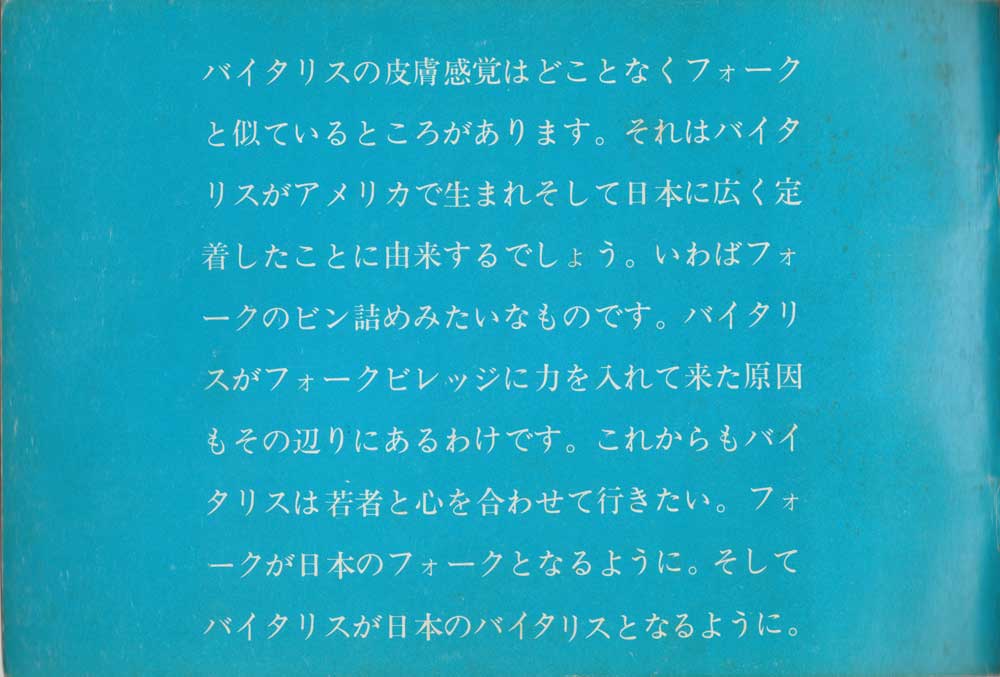 バイタリスの皮膚感覚はどことなくフォーク
と似ているところがあります。それはバイタ
リスがアメリカで生まれそして日本に広く定
着したことに由来するでしょう。いわばフォ
ークのビン詰めみたいなものです。バイタリ
スがフォークビレッジに力を入れて来た原因
もその辺りにあるわけです。これからもバイ
タリスは若者と心を合わせて行きたい。フォ
ークが日本のフォークとなるように。そして
バイタリスが日本のバイタリスとなるように。